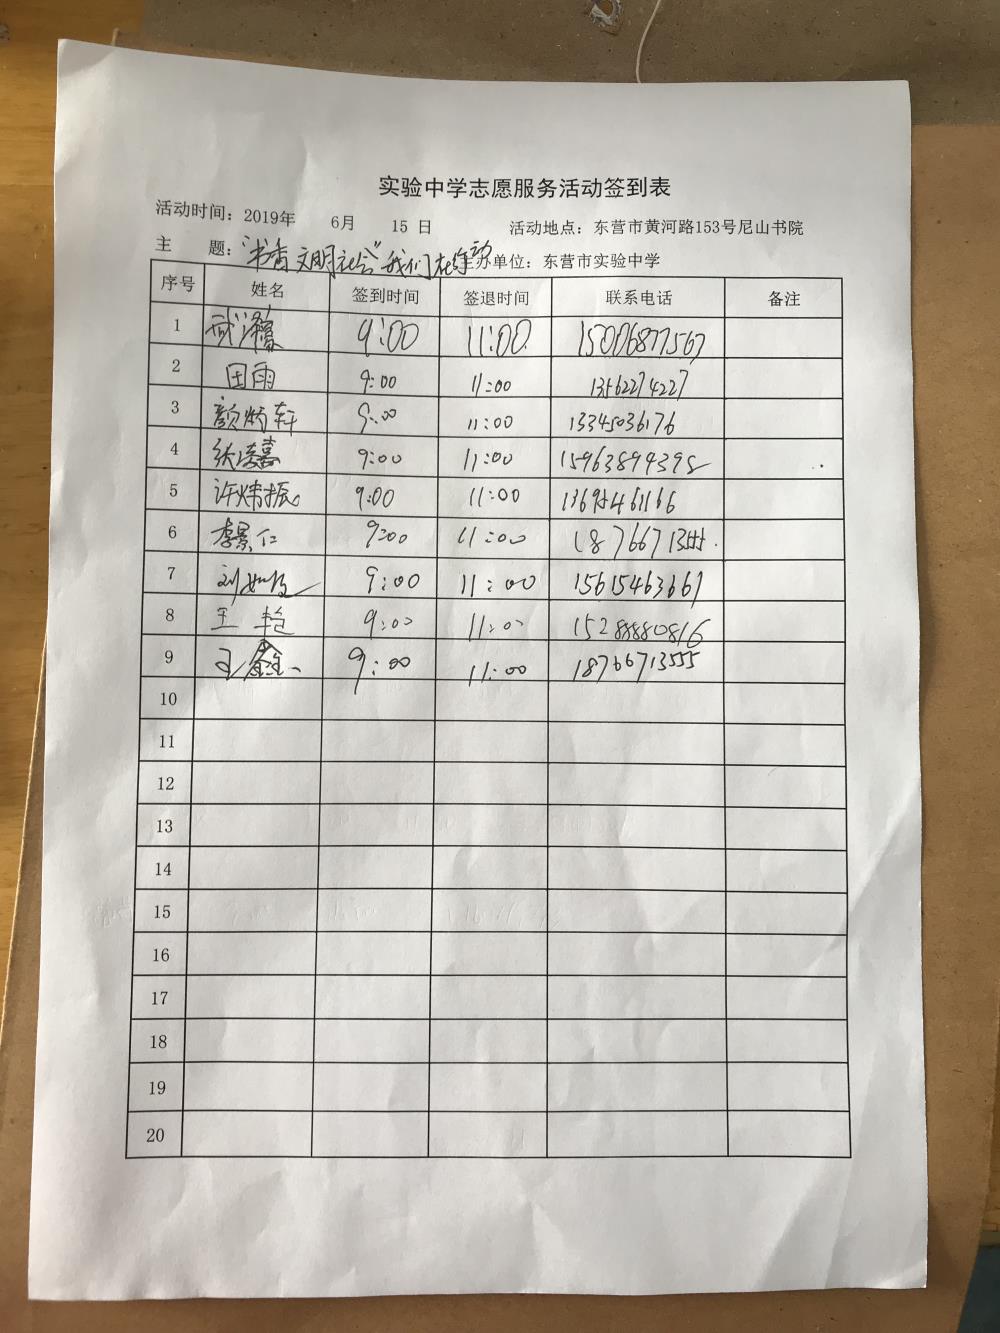 实验中学志愿服务活动签到表
活动时间：2019年 6月 15日 活动地点：东营市黄河路153号尼山书院
主 题：“书香文明社会”我们在行动 主办单位：东营市实验中学
序号 姓名 签到时间 签退时间 联系电话 备注
1 武 9:00 11:00 15006877567
2 田雨 9:00 11:00 13562274227
3 颜炳轩 9:00 11:00 13345036176
4 张凌嘉 9:00 11:00 15963894398
5 许炜振 9:00 11:00 13695461166
6 李景仁 9:00 11:00 18766713555
7 刘 9:00 11:00 15615463661
8 王艳 9:00 11:00 15288880816
9 王鑫 9:00 11:00 18766713555
10
11
12
13
14
15
16
17
18
19
20